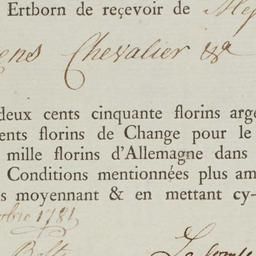 Ertborn de reçevoir de
ens Chevalier &a
deux cents cinquante florins arge
ents florins de Change pour le
mille florins d'Allemagne dans
Conditions mentionnées plus am
s moyennant & en mettant cy-
obre 1781